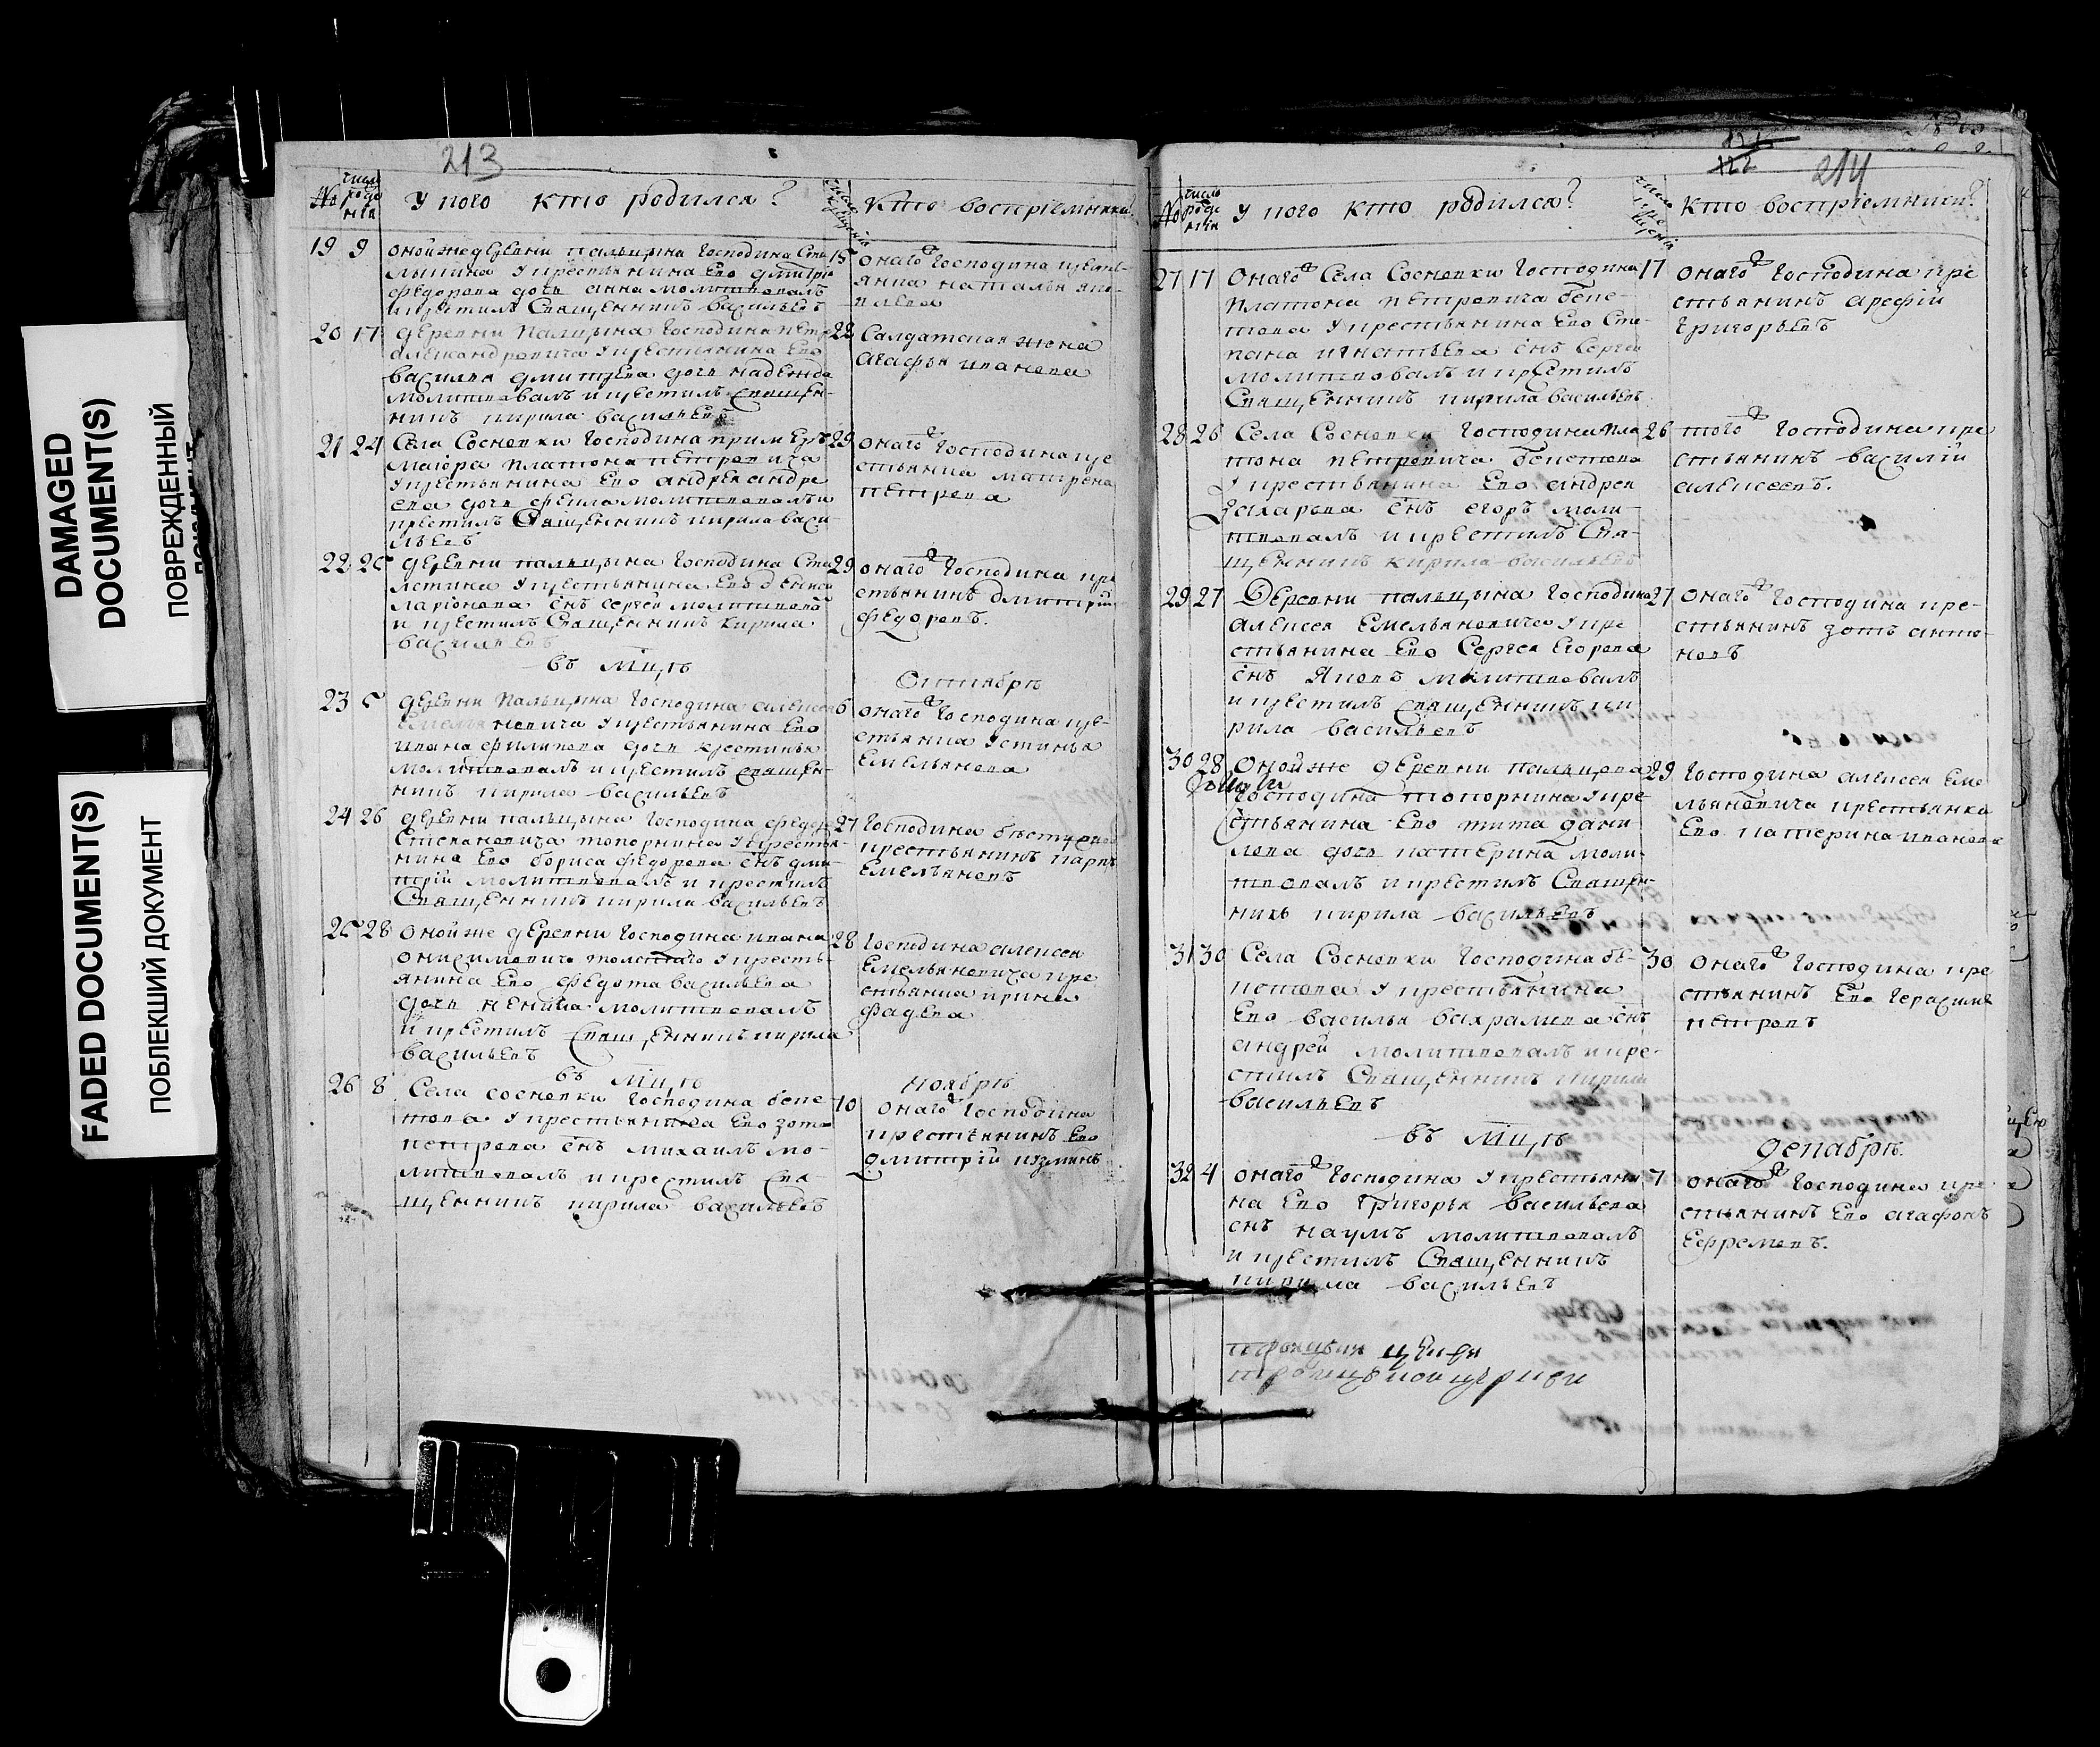 DAMAGED
DOCUMENT(S)
ПОВРЕЖДЕННЫЙ
FADED DOCUMENT(S)
ПОБЛЕКШИЙ ДОКУМЕНТ
213
№ число рожде нїя У кого кто родился? Кто воспрїемники
19 9 оной же деревни пальцына господина
у крестьянина ево дмитрїя
федорова дочь анна молитвовалъ
и крестилъ Священникъ васильевъ
15 онаго господина кресть-
янка наталья яко-
влева
20 17 деревни палцына господина петра
александровича у крестьянина ево
василья дмитрева дочь надежда
молитвовалъ и крестилъ священ-
никъ кирила васильевъ
22 Салдатская жена
агафья иванова
21 24 Села Сосновки господина примеръ
маїора платона петровича
у крестьянина ево андрея андре
ева дочь фекла молитвовалъ и
крестилъ Священникъ кирила васи
льевъ
29 онаго господина кре
стьянка матрена
петрова
22 25 деревни пальцына господина
у крестьянина ево дениса
ларїонова снъ сергей молитвовалъ
и крестилъ Священникъ кирила
васильевъ
29 онаго господина кре
стьянинъ дмитрїй
федоровъ.
въ мцѣ Октябрѣ
23 5 деревни пальцына господина алексея
Емельяновича у крестьянина ево
ивана филипова дочь крестинья
молитвовалъ и крестилъ священ-
никъ кирила васильевъ
6 онаго господина кре-
стьянка устинья
Емельянова
24 26 деревни пальцына господина федора
топорнина у крестья-
нина ево бориса федорова снъ дми-
трїй молитвовалъ и крестилъ
Священникъ кирила васильевъ
27 господина
крестьянинъ карпъ
Емельяновъ
25 28 оной же деревни господина ивана
онисимовича толстаго у кресть-
янина ево федота васильева
дочь молитвовалъ
и крестилъ Священникъ кирила
васильевъ
28 господина алексея
Емельяновича кре
стьянка ирина
фадева
въ мцѣ ноябрѣ
26 8 Села сосновки господина беке
това у крестьянина ево зота
петрова снъ михаилъ мо-
литвовалъ и крестилъ Свя-
щенникъ кирила васильевъ
10 онаго господина
крестьянинъ ево
дмитрїй козминъ
122 214
№ число рожде нїя У кого кто родился? число крещенїя Кто воспрїемники?
27 17 Онаго Села Сосновки господина
платона петровича беке-
това у крестьянина ево Сте
пана игнатьева снъ Сергей
молитвовалъ и крестилъ
Священникъ кирила васильевъ
17 онаго господина кре
стьянинъ арефїй
григорьевъ
28 26 Села Сосновки господина пла
тона петровича бекетова
у крестьянина ево андрея
Захарова снъ егоръ моли-
твовалъ и крестилъ Свя-
щенникъ кирила васильевъ
26 того господина кре
стьянинъ василїй
алексеевъ.
29 27 Деревни пальцына господина
алексея Емельяновича у кре
стьянина ево Сергея Егорова
снъ Яковъ молитвовалъ
и крестилъ священникъ ки
рила васильевъ
27 онаго господина кре-
стьянинъ зотъ анто-
новъ
30 28 Оной же деревни пальцына
господина топорнина у кре
стьянина ево тита дани
лова дочь катерина моли-
твовалъ и крестилъ Священ-
никъ кирила васильевъ
29 господина алексея Еме
льяновича крестьянка
Ево катерина иванова
31 30 Села Сосновки господина бе-
кетова у крестьянина
Ево василья вахрамева снъ
андрей молитвовалъ и кре-
стилъ Священникъ кирила
васильевъ
30 онаго господина кре
стьянинъ Ево герасимъ
петровъ
въ мцѣ декабрѣ.
32 4 онаго господина у крестьяни
на ево григорья васильева
снъ наумъ молитвовалъ
и крестилъ Священникъ
кирила васильевъ
7 онаго господина кре
стьянинъ Ево агафонъ
Ефремовъ.